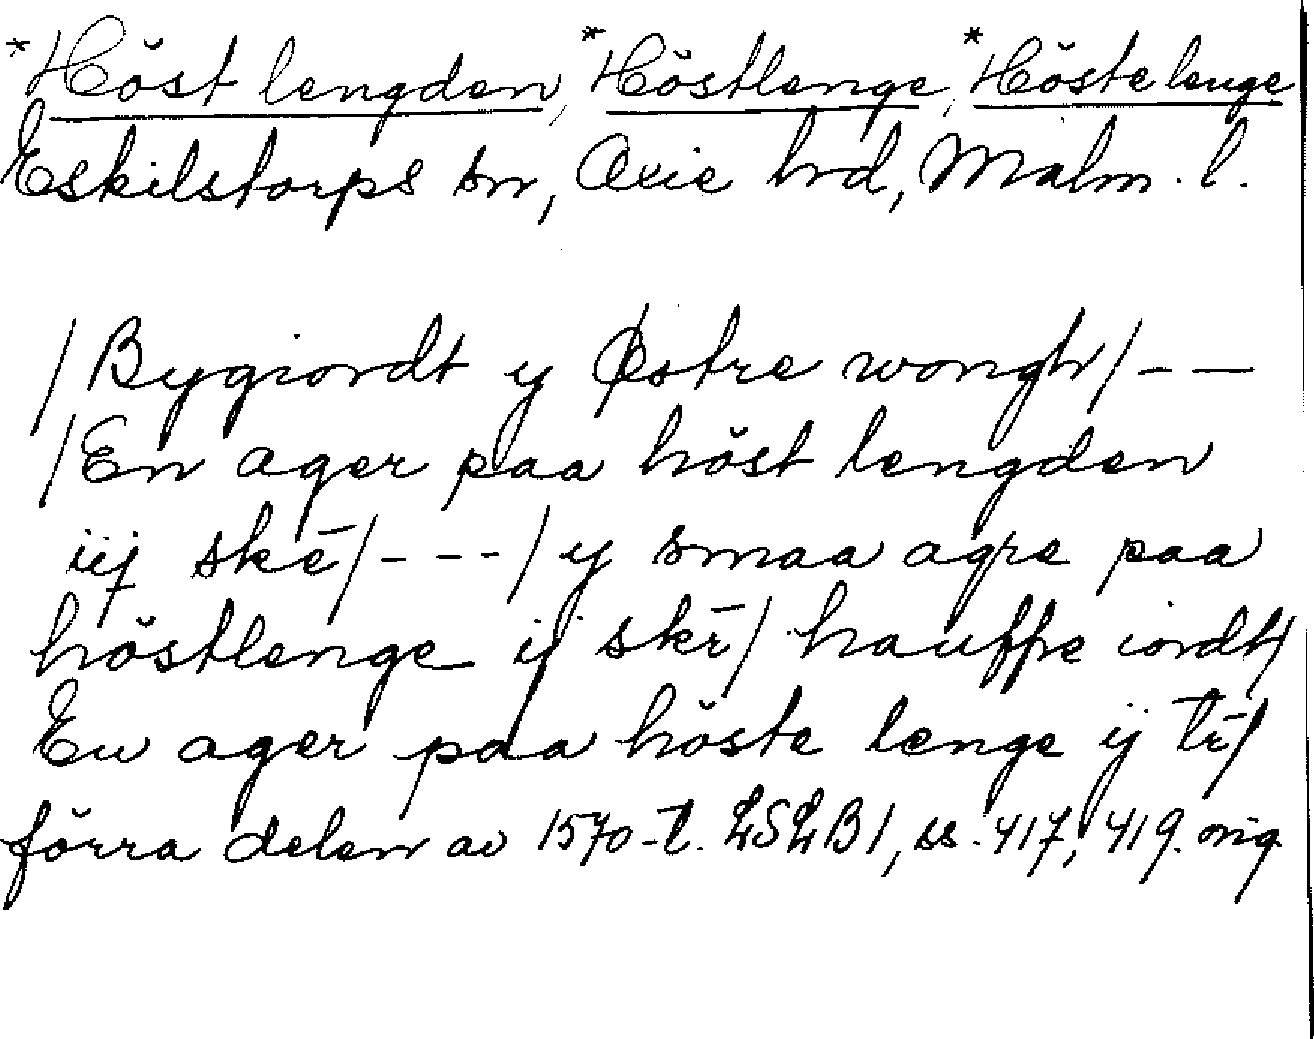 *Höst lengden, *Höstlenge, *Höste lenge
Eskilstorps sn, Oxie hrd, Malm. l.
/Bygiordt y Østre wongh/ - —
/En ager paa höst lengden
iij skē/ - - - / y smaa agre paa
höstlenge ij skr̄/ hauffre iordt/
En ager paa höste lenge ij tr̄/
förra delen av 1570-t. LSLB1, ss. 417, 419. orig.